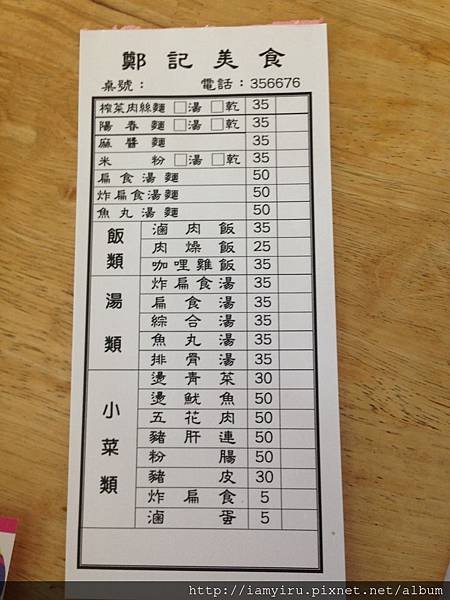 鄭記美食
桌號： 電話：356676
榨菜肉絲麵 □湯 □乾 35
陽春麵 □湯 □乾 35
麻醬麵 35
米粉 □湯 □乾 35
扁食湯麵 50
炸扁食湯麵 50
魚丸湯麵 50
飯類
滷肉飯 35
肉燥飯 25
咖哩雞飯 35
湯類
炸扁食湯 35
扁食湯 35
綜合湯 35
魚丸湯 35
排骨湯 35
小菜類
燙青菜 30
燙魷魚 50
五花肉 50
豬肝連 50
粉腸 50
豬皮 30
炸扁食 5
滷蛋 5
http://iamyiru.pixnet.net/album